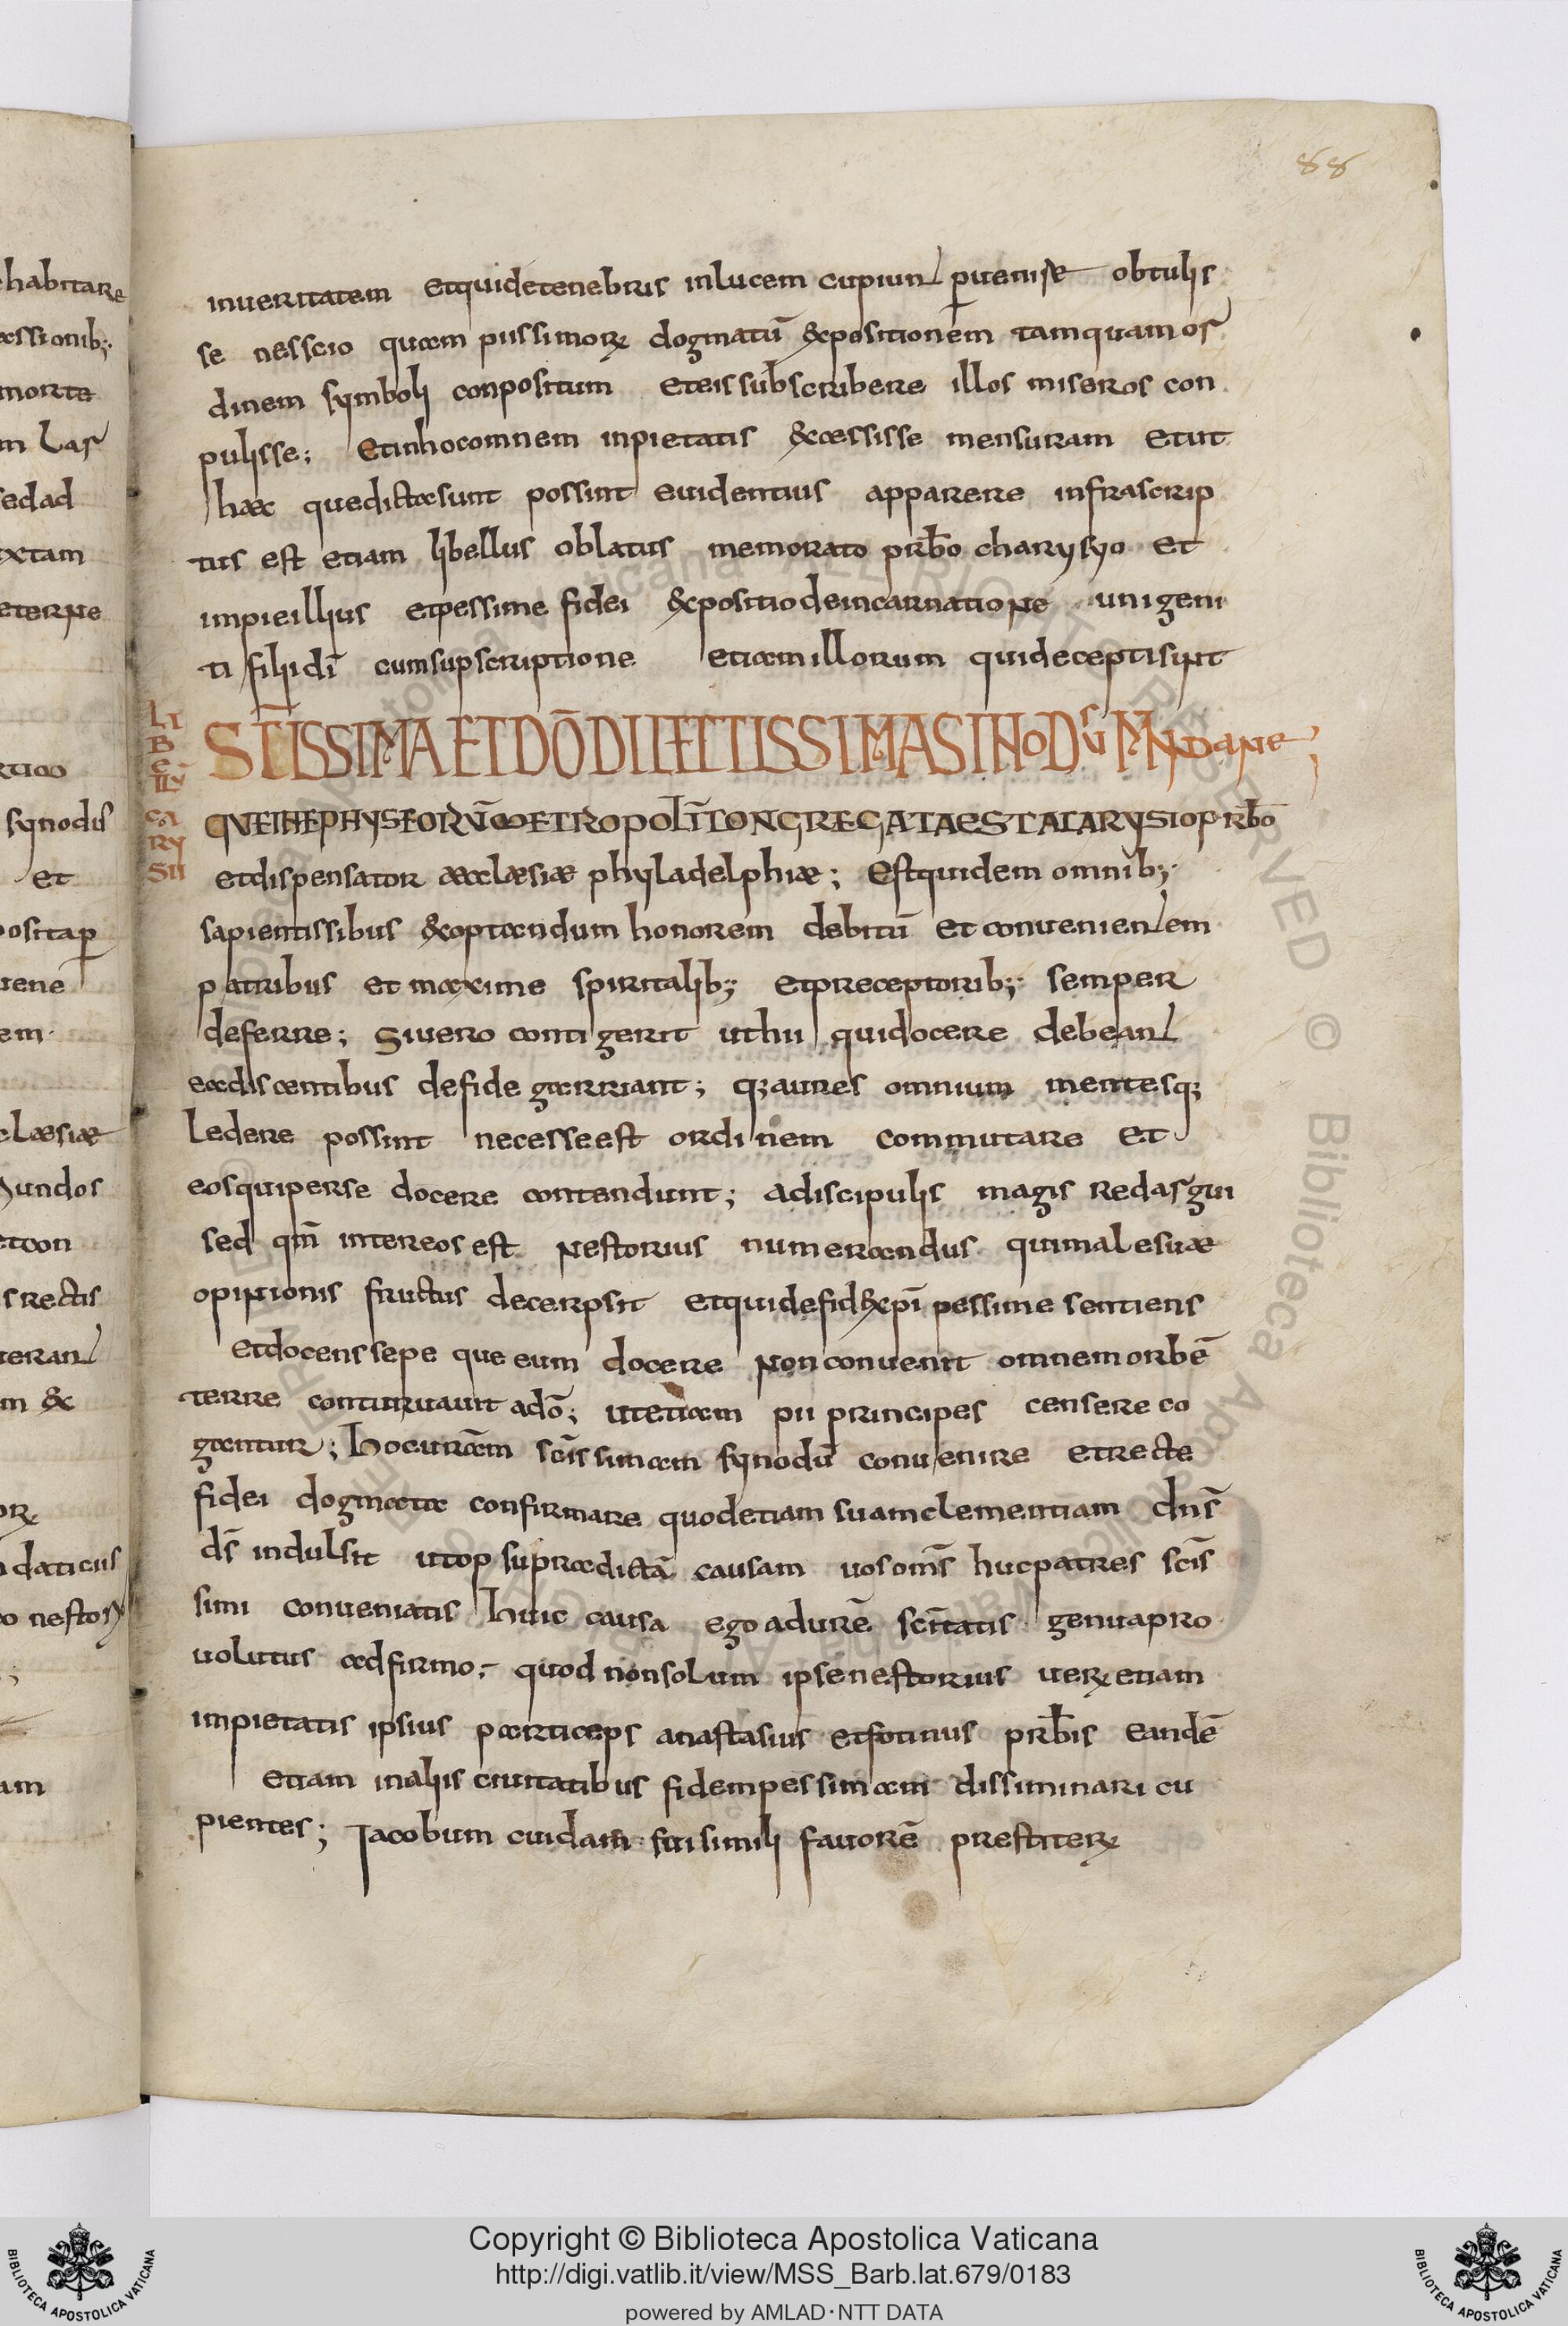 88
inueritatem etquidetenebris inlucem cupiunt ꝑuenisse obtulis
se nesscio quam piissimorꝝ dogmatū &positionem tamquamor
dinem symboli conpositum eteissubscribere illos miseros con
pulisse; Etinhocomnem inpietatis &cessisse mensuram etut
haec quedictasunt possint euidentius apparere infrascrip
tus est etiam libellus oblatus memorato prb̄o charysyo et
impieillius etpessime fidei &positiodeincarnatione unigeni
ti filiidī cumsupscriptione etiamillorum quideceptisunt
LI
BE
LLŪ
CA
RY
SII
SC̄ISSIMA ET DŌ DILECTISSIMA SINODū
QVEINEPHYSEORŪMETROPOLĪCONGREGATAEST ACARYSIOPRB̄O
etdispensator aecclaesiae phyladelphiae; Estquidem omnib;
sapientissibus &optandum honorem debitū et conuenientem
patribus et maxime spiritalib; etpreceptorib; semper
deferre; Siuero contigerit uthii quidocere debeant
eadiscentibus defide garriant; q; aures omnium mentesq;
Ledere possint necesseest ordinem commutare et
eosquiperse docere contendunt; adiscipulis magis redargui
sed qm̄ intereos est Nestorius numerandus quimalesuae
opinionis fructus decerpsit etquidefid&pī pessime sentiens
etdocenssepe que eum docere Nonconuenit omnemorbē
terre conturuauit adō; utetiam pii principes censere co
gantur; hocuram sc̄issimam synodū conuenire etrecte
fidei dogmata confirmare quodetiam suamclementiam dn̄s
ds̄ indulsit utop supradictā causam uosom̄s hucpatres sc̄is
simi conueniatis huic causa ego adurē sc̄itatis genuapro
uolutus adfirmo; quod nonsolum ipsenestorius uerꝝetiam
impietatis ipsius particeps anastasius etfotinus prb̄is eandē
etiam inaliis ciuitatibus fidempessimam dissiminari cu
pientes; Jacobum cuidam suisimili fauorē prestiterꝝ
habitare
essionib;
morte
m Las
sedad
extam
eterne
synodus
et
ositaꝑ
tene
em
claesiae
undos
etcon
s rectis
teran
m &
orꝝ
daticus
o nestorꝝ
am
Copyright © Biblioteca Apostolica Vaticana
http://digi.vatlib.it/view/MSS_Barb.lat.679/0183
powered by AMLAD·NTT DATA
BIBLIOTECA APOSTOLICA VATICANA
BIBLIOTECA APOSTOLICA VATICANA